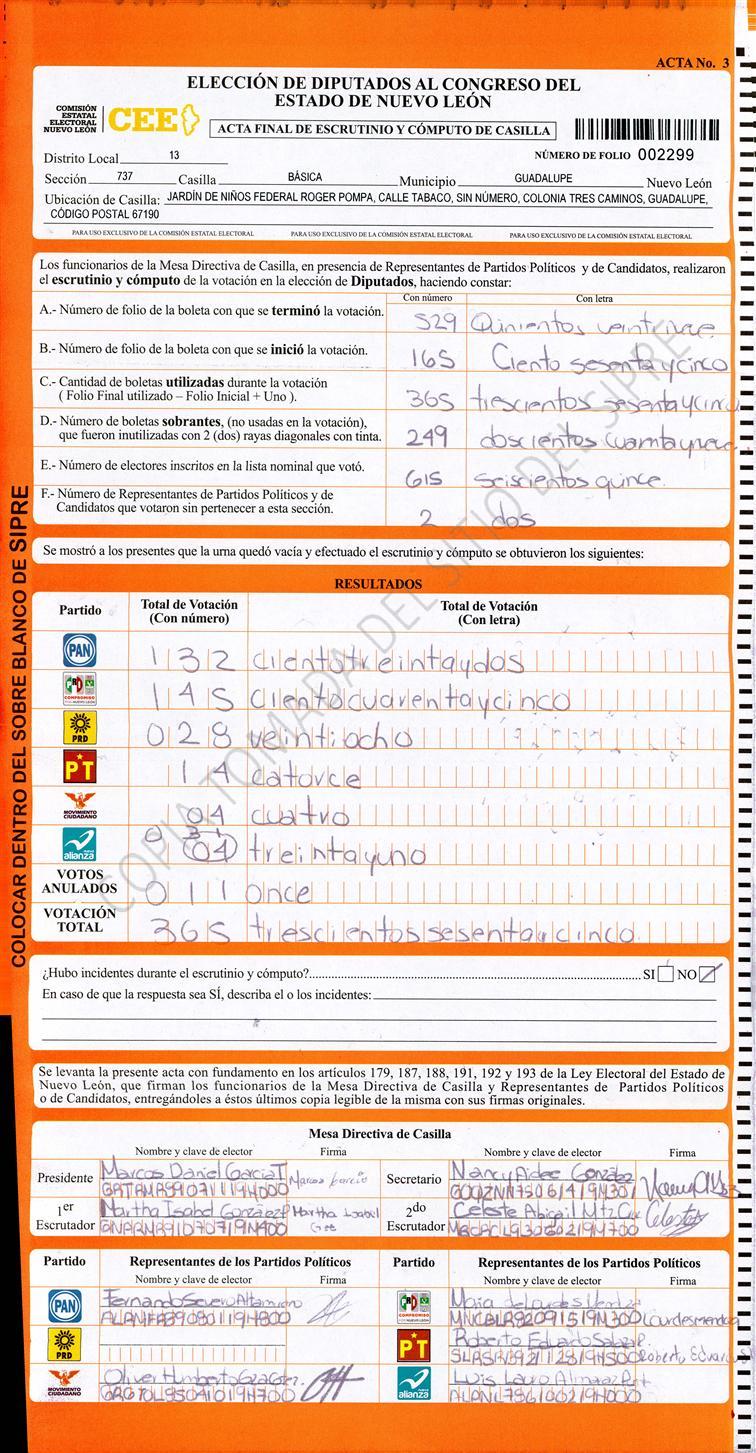 ACTA No. 3
ELECCIÓN DE DIPUTADOS AL CONGRESO DEL
ESTADO DE NUEVO LEÓN
COMISIÓN
ESTATAL
ELECTORAL
NUEVO LEÓN
CEE
ACTA FINAL DE ESCRUTINIO Y CÓMPUTO DE CASILLA
Distrito Local 13 NÚMERO DE FOLIO 002299
Sección 737 Casilla BÁSICA Municipio GUADALUPE Nuevo León
Ubicación de Casilla: JARDÍN DE NIÑOS FEDERAL ROGER POMPA, CALLE TABACO, SIN NÚMERO, COLONIA TRES CAMINOS, GUADALUPE,
CÓDIGO POSTAL 67190
PARA USO EXCLUSIVO DE LA COMISIÓN ESTATAL ELECTORAL PARA USO EXCLUSIVO DE LA COMISIÓN ESTATAL ELECTORAL PARA USO EXCLUSIVO DE LA COMISIÓN ESTATAL ELECTORAL
Los funcionarios de la Mesa Directiva de Casilla, en presencia de Representantes de Partidos Políticos y de Candidatos, realizaron
el escrutinio y cómputo de la votación en la elección de Diputados, haciendo constar:
Con número Con letra
A.- Número de folio de la boleta con que se terminó la votación. 529 Quinientos veintinueve
B.- Número de folio de la boleta con que se inició la votación. 165 Ciento sesenta y cinco
C.- Cantidad de boletas utilizadas durante la votación
( Folio Final utilizado – Folio Inicial + Uno ). 365 trescientos sesenta y cinco
D.- Número de boletas sobrantes, (no usadas en la votación),
que fueron inutilizadas con 2 (dos) rayas diagonales con tinta. 249 doscientos
E.- Número de electores inscritos en la lista nominal que votó. 615 seiscientos quince.
F.- Número de Representantes de Partidos Políticos y de
Candidatos que votaron sin pertenecer a esta sección. 2 dos
Se mostró a los presentes que la urna quedó vacía y efectuado el escrutinio y cómputo se obtuvieron los siguientes:
RESULTADOS
Partido Total de Votación Total de Votación
(Con número) (Con letra)
PAN 132 cientotreintaydos
PRD COMPROMISO POR NUEVO LEÓN 145 cientocuarentaycinco
PRD 028 veintiocho
PT 14 catorce
MOVIMIENTO CIUDADANO 04 cuatro
nueva alianza 031 04 treintayuno
VOTOS
ANULADOS 011 once
VOTACIÓN
TOTAL 365 trescientossesentaycinco
COLOCAR DENTRO DEL SOBRE BLANCO DE SIPRE
COPIA TOMADA DEL SITIO DEL SIPRE
¿Hubo incidentes durante el escrutinio y cómputo? SI NO
En caso de que la respuesta sea SÍ, describa el o los incidentes:
Se levanta la presente acta con fundamento en los artículos 179, 187, 188, 191, 192 y 193 de la Ley Electoral del Estado de
Nuevo León, que firman los funcionarios de la Mesa Directiva de Casilla y Representantes de Partidos Políticos
o de Candidatos, entregándoles a éstos últimos copia legible de la misma con sus firmas originales.
Mesa Directiva de Casilla
Nombre y clave de elector Firma Nombre y clave de elector Firma
Presidente Marcos Daniel Garcia T Marcos Garcia Secretario Nancy Aidee González
1er
Escrutador Martha Isabel González P Martha Isabel 2do
Escrutador Celeste Abigail Mtz
Partido Representantes de los Partidos Políticos Partido Representantes de los Partidos Políticos
Nombre y clave de elector Firma Nombre y clave de elector Firma
PAN Fernando Severo Altamirano COMPROMISO POR NUEVO LEÓN Maria de Lourdes
PRD PT Roberto Eduardo
MOVIMIENTO CIUDADANO Oliver Humberto nueva alianza Luis Lauro Almaraz